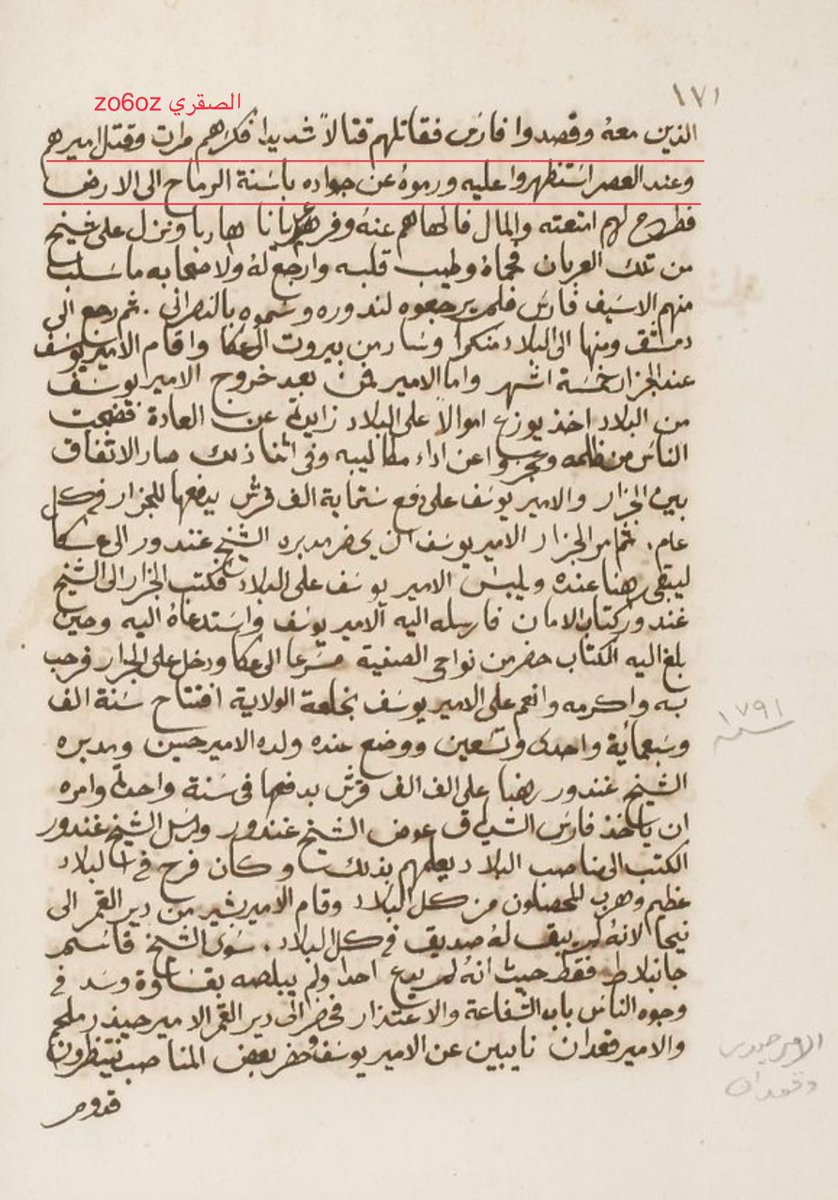 ١٧١
الصقري zo6oz
الذين معهُ وقصدوا فارس فقاتلهم قتالاً شديدا فكرّهم مرات وقتل اميرهم
وعند العصر استظهروا عليه ورموهُ عن جواده باسنة الرماح الى الارض
فطرح لهم امتعته والمال فالهاهم عنهُ وفر هاربا ونزل على شيخ
من تلك العربان فحماهُ وطيب قلبه وارجع لهُ ولاصحابه ما سلب
منهم الا سيف فارس فلم يرجعوه لندوره وسموه بالنصراني . ثم رجع الى
دمشق ومنها الى البلاد متنكرا وسار من بيروت الى عكا واقام الامير يوسف
عند الجزار خمسة اشهر واما الامير فمن بعد خروج الامير يوسف
من البلاد اخذ يوزع اموالاً على البلاد زايدة عن العادة فضجت
الناس من ظلمه وعجزوا عن اداء مطاليبه وفي اثنا ذلك صار الاتفاق
بين الجزار والامير يوسف على دفع ستماية الف قرش يدفعها للجزار في كل
عام . ثم امر الجزار الامير يوسف ان يحضر مدبره الشيخ غندور الى عكا
ليبقى رهنا عنده ويلبس الامير يوسف على البلاد فكتب الجزار الى الشيخ
غندور كتاب الامان فارسله اليه الامير يوسف واستدعاهُ اليه وحين
بلغ اليه الكتاب حضر من نواحي الصنية مسرعا الى عكا ودخل على الجزار فرحب
به واكرمه وانعم على الامير يوسف بخلعة الولاية افتتاح سنة الف
وسبعماية واحدى وتسعين ووضع عنده ولده الامير حسين ومدبره
الشيخ غندور رهنا على الف الف قرش يدفعها في سنة واحدة وامره
ان ياخذ فارس الشدياق عوض الشيخ غندور وارسل الشيخ غندور
الكتب الى مناصب البلاد يعلمهم بذلك وكان فرح في البلاد
عظيم وهرب المحصلون من كل البلاد وقام الامير بشير من دير القمر الى
نيحا لانهُ لم يبق لهُ صديق في كل البلاد . سوى الشيخ قاسم
جانبلاط فقط حيث انهُ لم يدع احدا ولم يبلصه بقساوة وسد في
وجوه الناس باب الشفاعة والاعتذار فحضر الى دير القمر الامير حيدر ملحم
والامير قعدان نايبين عن الامير يوسف وحضر بعض المناصب ينتظرون
قدوم
سنة ١٧٩١
الامير حيدر
وقعدان